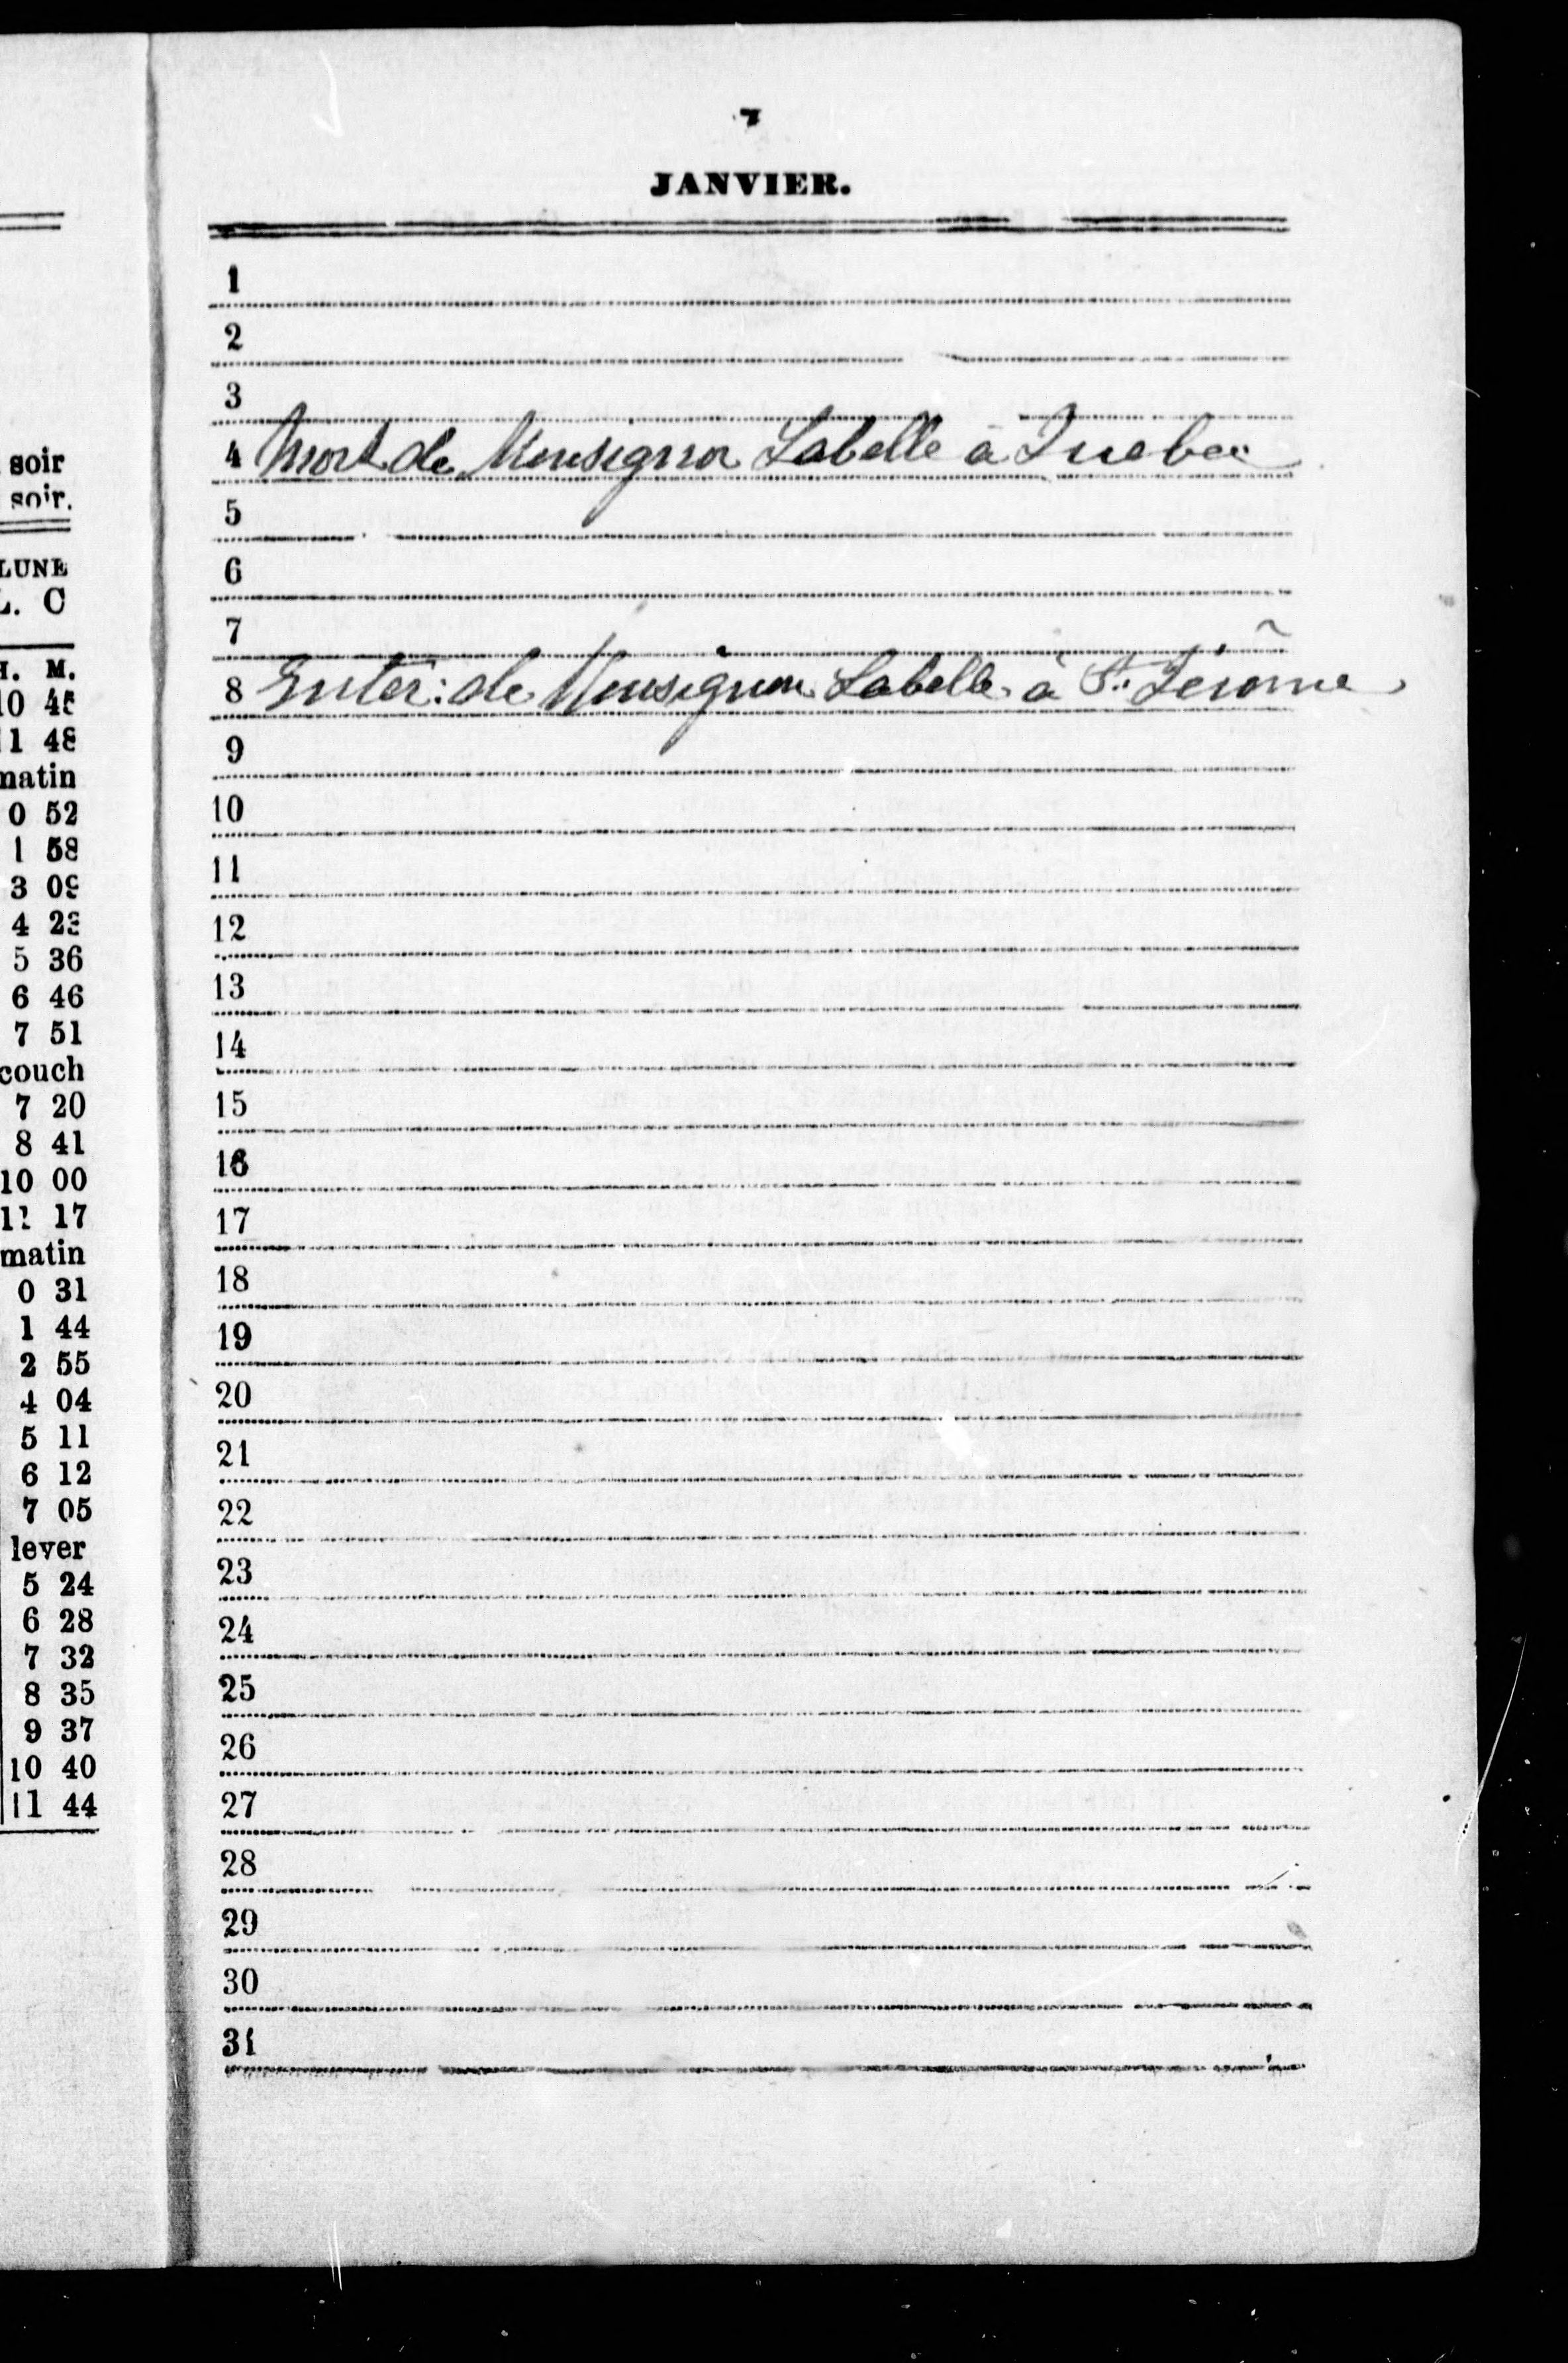 soir
soir.
LUNE
L. C
H. M.
10 45
11 48
matin
0 52
1 58
3 09
4 23
5 36
6 46
7 51
couch
7 20
8 41
10 00
11 17
matin
0 31
1 44
2 55
4 04
5 11
6 12
7 05
lever
5 24
6 28
7 32
8 35
9 37
10 40
11 44
7
JANVIER.
1
2
3
4 Mort de Monsignor Labelle à Quebec
5
6
7
8 Enter: de Monsignor Labelle à St. Jérome
9
10
11
12
13
14
15
16
17
18
19
20
21
22
23
24
25
26
27
28
29
30
31